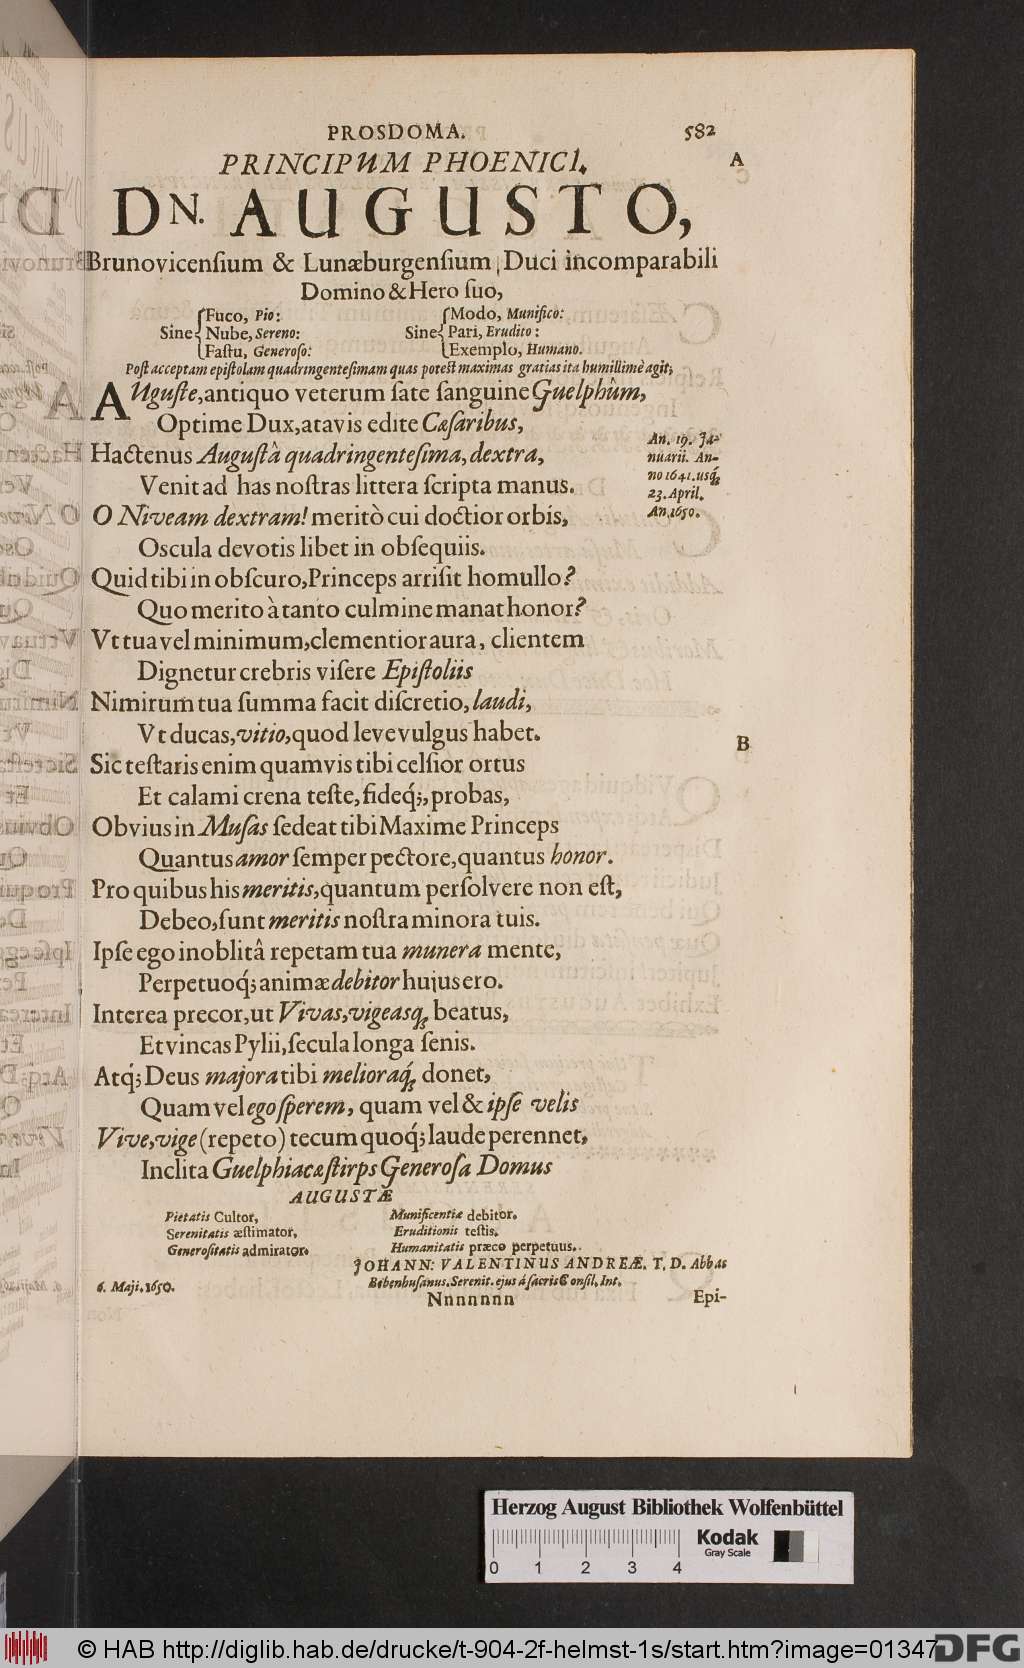 PROSDOMA. 582
PRINCIPUM PHOENICI. A
DN. AUGUSTO,
Brunovicenſium & Lunæburgenſium, Duci incomparabili
Domino & Hero ſuo,
Sine { Fuco, Pio: Sine { Modo, Munifico:
Nube, Sereno: Pari, Erudito:
Faſtu, Generoſo: Exemplo, Humano.
Poſt acceptam epiſtolam quadringenteſimam quas poteſt maximas gratias ita humillimè agit;
AUguſte, antiquo veterum ſate ſanguine Guelphûm,
Optime Dux, atavis edite Cæſaribus,
Hactenus Auguſtâ quadringenteſima, dextra,
Venit ad has noſtras littera ſcripta manus.
An. 19. Ja-
nuarii. An-
no 1641. uſq́;
23. April.
An. 1650.
O Niveam dextram! meritò cui doctior orbis,
Oscula devotis libet in obſequiis.
Quid tibi in obſcuro, Princeps arriſit homullo?
Quo merito à tanto culmine manat honor?
Vt tua vel minimum, clementior aura, clientem
Dignetur crebris viſere Epiſtoliis
Nimirum tua ſumma facit diſcretio, laudi,
Vt ducas, vitio, quod leve vulgus habet.
B
Sic teſtaris enim quamvis tibi celſior ortus
Et calami crena teſte, fideq́;, probas,
Obvius in Muſas ſedeat tibi Maxime Princeps
Quantus amor ſemper pectore, quantus honor.
Pro quibus his meritis, quantum perſolvere non eſt,
Debeo, ſunt meritis noſtra minora tuis.
Ipſe ego inoblitâ repetam tua munera mente,
Perpetuoq́; animæ debitor hujus ero.
Interea precor, ut Vivas, vigeasq́; beatus,
Et vincas Pylii, ſecula longa ſenis.
Atq́; Deus majora tibi melioraq́; donet,
Quam vel ego ſperem, quam vel & ipſe velis
Vive, vige (repeto) tecum quoq́; laude perennet,
Inclita Guelphiacæ ſtirps Generoſa Domus
AUGUSTÆ
Pietatis Cultor, Munificentiæ debitor.
Serenitatis æſtimator, Eruditionis teſtis.
Generoſitatis admirator. Humanitatis præco perpetuus.
JOHANN: VALENTINUS ANDREÆ. T. D. Abbas
6. Maji. 1650. Bebenhuſanus. Serenit. ejus á ſacris Conſil. Int.
Nnnnnnn Epi-
Herzog August Bibliothek Wolfenbüttel
Kodak
Gray Scale
0 1 2 3 4
© HAB http://diglib.hab.de/drucke/t-904-2f-helmst-1s/start.htm?image=01347
DFG